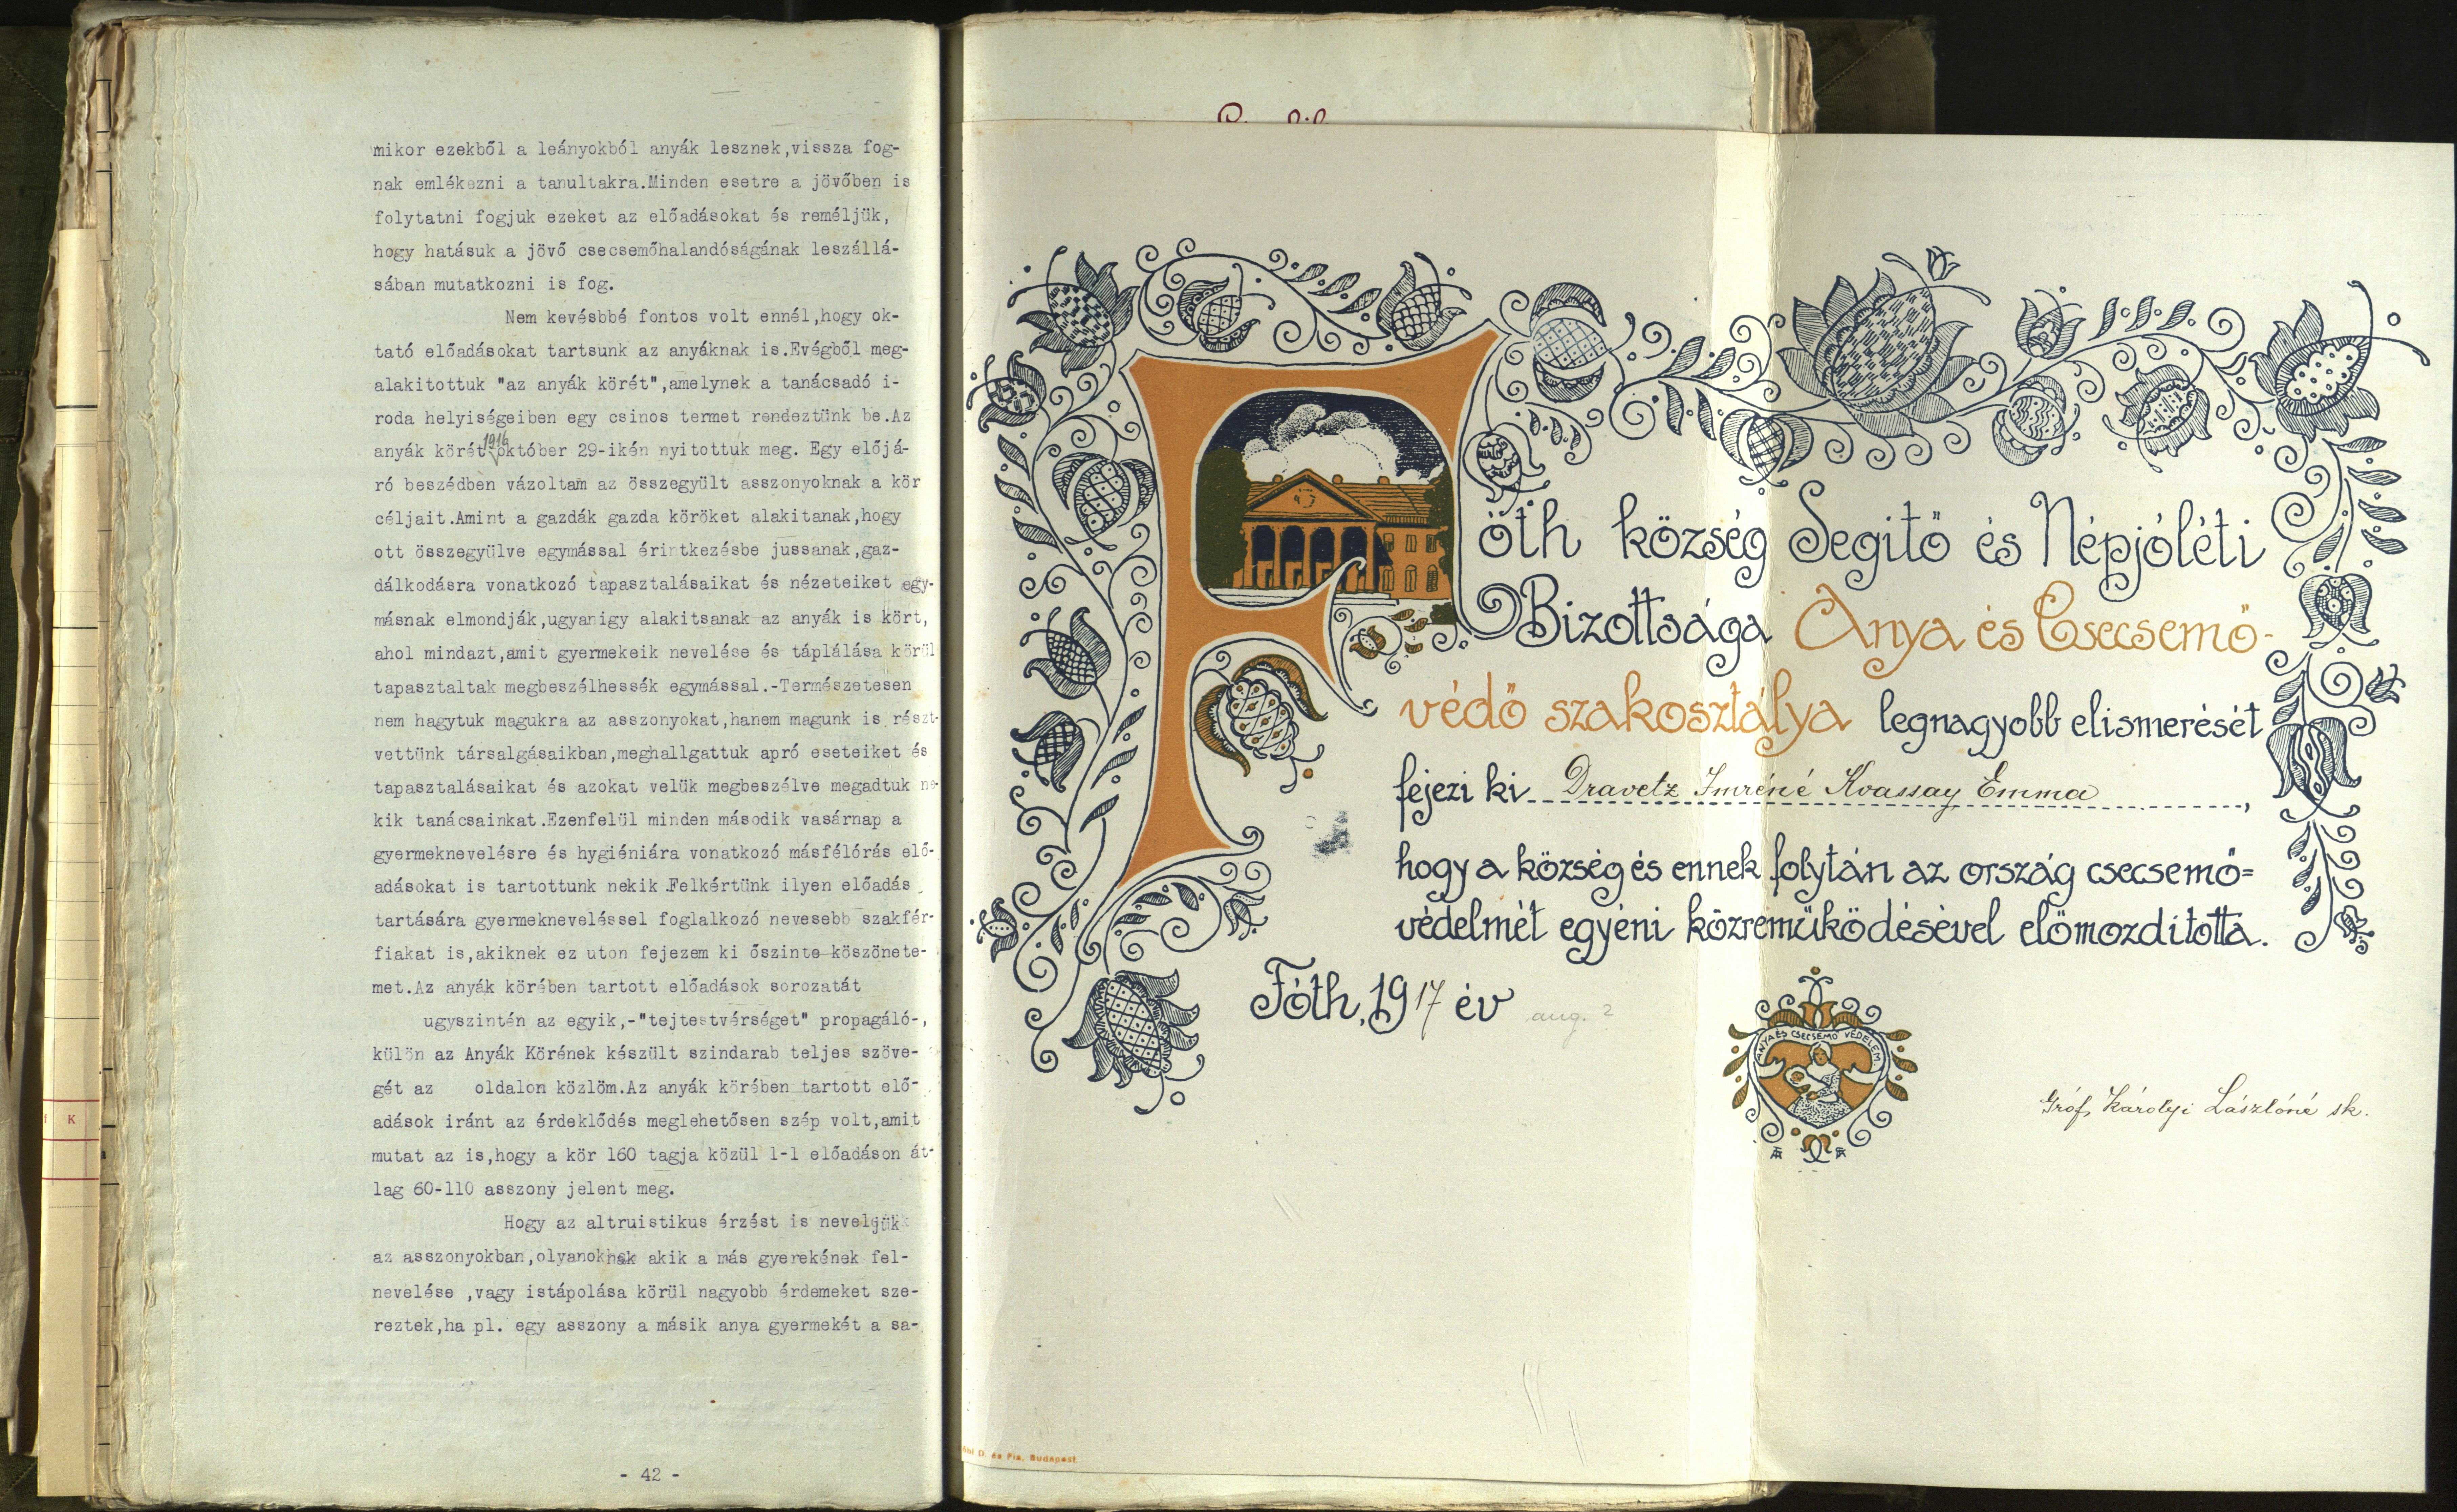 mikor ezekből a leányokból anyák lesznek,vissza fog-
nak emlékezni a tanultakra.Minden esetre a jövőben is
folytatni fogjuk ezeket az előadásokat és reméljük,
hogy hatásuk a jövő csecsemőhalandóságának leszállá-
sában mutatkozni is fog.
Nem kevésbbé fontos volt ennél,hogy ok-
tató előadásokat tartsunk az anyáknak is.Evégből meg-
alakitottuk "az anyák körét",amelynek a tanácsadó i-
roda helyiségeiben egy csinos termet rendeztünk be.Az
anyák körét 1916 október 29-ikén nyitottuk meg. Egy előjá-
ró beszédben vázoltam az összegyült asszonyoknak a kör
céljait.Amint a gazdák gazda köröket alakitanak,hogy
ott összegyülve egymással érintkezésbe jussanak,gaz-
dálkodásra vonatkozó tapasztalásaikat és nézeteiket egy-
másnak elmondják,ugyanigy alakitsanak az anyák is kört,
ahol mindazt,amit gyermekeik nevelése és táplálása körül
tapasztaltak megbeszélhessék egymással.-Természetesen
nem hagytuk magukra az asszonyokat,hanem magunk is részt-
vettünk társalgásaikban,meghallgattuk apró eseteiket és
tapasztalásaikat és azokat velük megbeszélve megadtuk ne-
kik tanácsainkat.Ezenfelül minden második vasárnap a
gyermeknevelésre és hygiéniára vonatkozó másfélórás elő-
adásokat is tartottunk nekik.Felkértünk ilyen előadás
tartására gyermekneveléssel foglalkozó nevesebb szakfér-
fiakat is,akiknek ez uton fejezem ki őszinte köszönete-
met.Az anyák körében tartott előadások sorozatát
ugyszintén az egyik,-"tejtestvérséget" propagáló-,
külön az Anyák Körének készült szindarab teljes szöve-
gét az oldalon közlöm.Az anyák körében tartott elő-
adások iránt az érdeklődés meglehetősen szép volt,amit
mutat az is,hogy a kör 160 tagja közül 1-1 előadáson át-
lag 60-110 asszony jelent meg.
Hogy az altruistikus érzést is neveljük
az asszonyokban,olyanoknak akik a más gyerekének fel-
nevelése ,vagy istápolása körül nagyobb érdemeket sze-
reztek,ha pl. egy asszony a másik anya gyermekét a sa-
- 42 -
Fóth község Segitő és Népjóléti
Bizottsága Anya és Csecsemő-
védő szakosztálya legnagyobb elismerését
fejezi ki Dravetz Imréné Kvassay Emma,
hogy a község és ennek folytán az ország csecsemő=
védelmét egyéni közreműködésével előmozditotta.
Fóth, 1917 év aug. 2
ANYA ÉS CSECSEMŐ VÉDELEM
Gróf Károlyi Lászlóné sk.
D. és Fia, Budapest